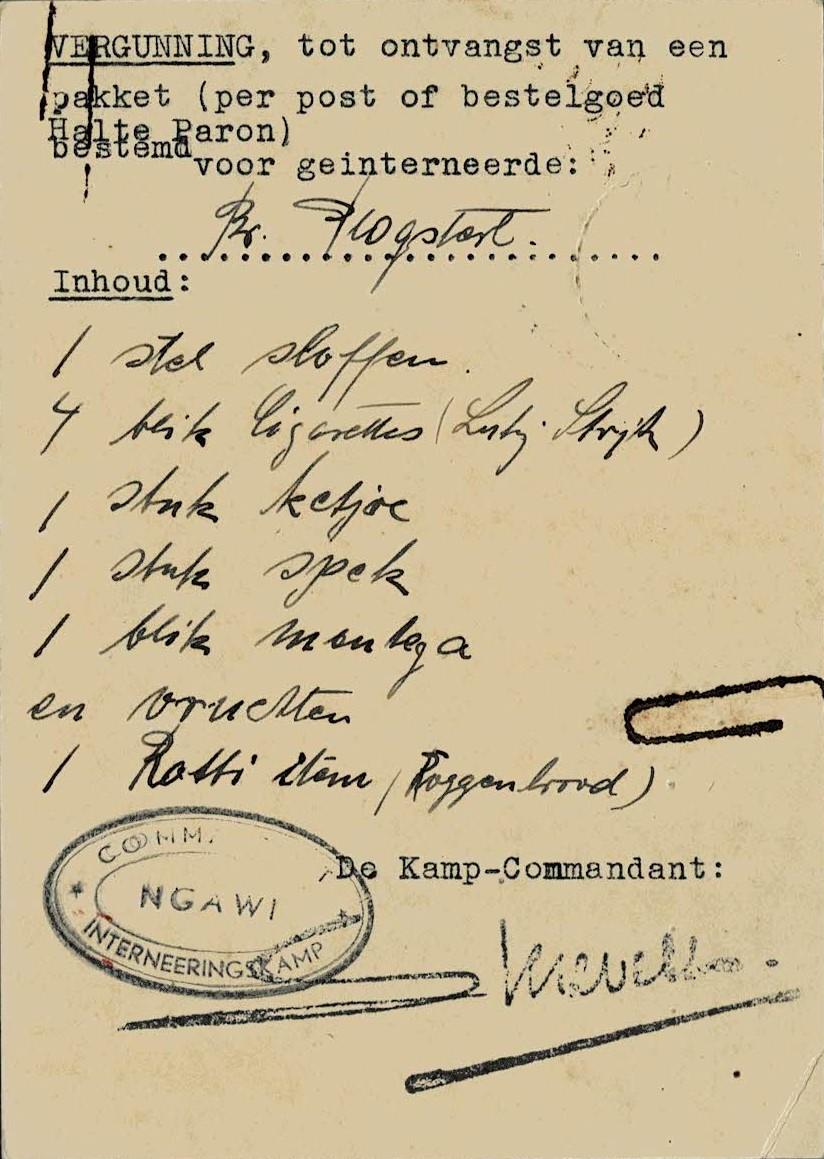 VERGUNNING, tot ontvangst van een
pakket (per post of bestelgoed
Halte Paron)
bestemd voor geinterneerde:
Br.
Inhoud:
1 stel sloffen.
4 blik Cigarettes (Luky Strijk)
1 stuk ketjoe
1 stuk spek
1 blik mentega
en vruchten
1 Rotti itam (Roggenbrood)
De Kamp-Commandant:
COMM.
NGAWI
INTERNEERINGSKAMP